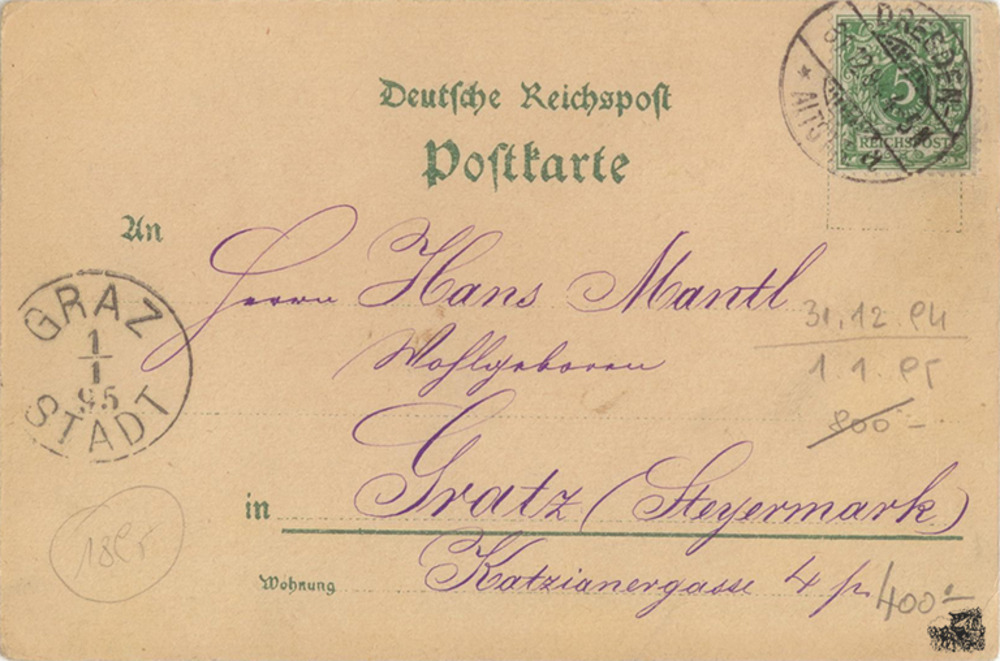 Deutsche Reichspost
Postkarte
DRESDEN
ALTST.
5
REICHSPOST
An
Herrn Hans Mantl
Wohlgeboren
31.12.94
1.1.95
800-
GRAZ
1
1
95
STADT
in Gratz (Steyermark)
1895
Wohnung Katzianergasse 4 p.
400-